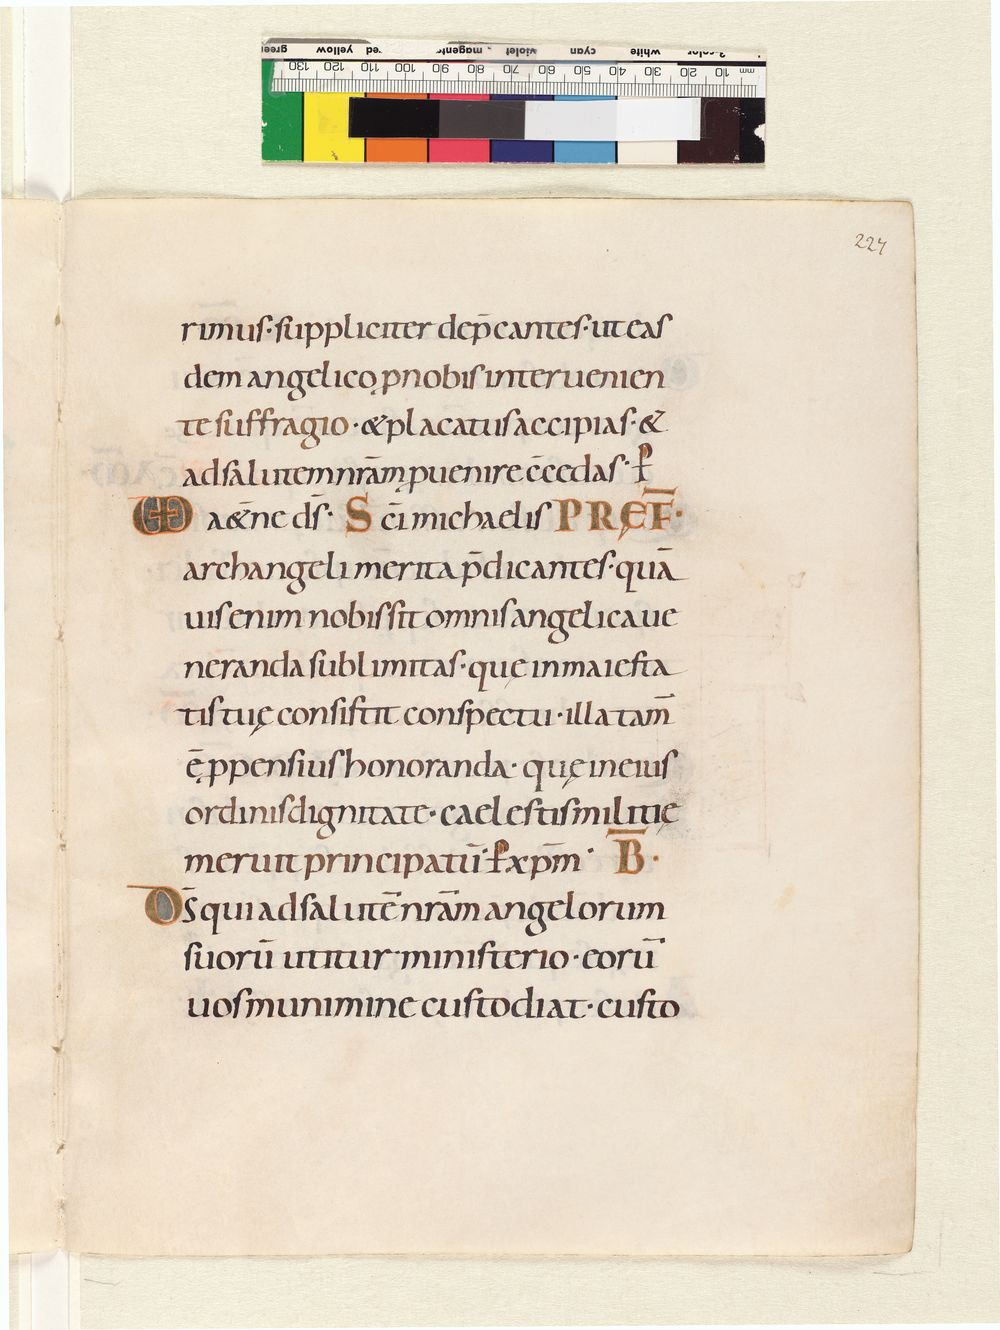 green yellow red magenta violet cyan white 3-color
130 120 110 100 90 80 70 60 50 40 30 20 10 mm
227
rimus·suppliciter dep̄cantes·ut eas
dem angelico ꝓnobis interuenien
te suffragio·&placatus accipias·&
ad salutem nr̄am ꝑuenire c̄cedas·ꝑ
VD a&ne ds̄· S c̄i michaelis PRĘF̄·
archangeli merita p̄dicantes·quā
uis enim nobis sit omnis angelica ue
neranda sublimitas·quę in maiesta
tis tuę consistit conspectu·illa tam̄
ē ꝓpensius honoranda·quę in eius
ordinis dignitate·caelestis militię
meruit principatū·ꝑ xp̄m· B̄·
DS̄ qui ad salutē nr̄am angelorum
suorū utitur ministerio·eorū
uos munimine custodiat·custo